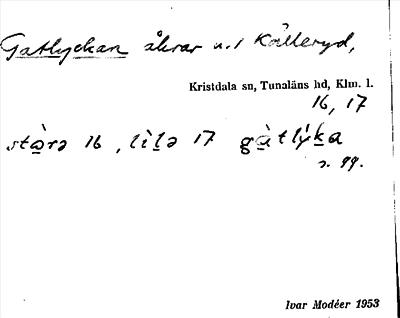 Gatlyckan åkrar u. / Källeryd,
Kristdala sn, Tunaläns hd, Klm. l.
16, 17
stòrə 16, lìlə 17 gàtlýka
s. 99.
Ivar Modéer 1953